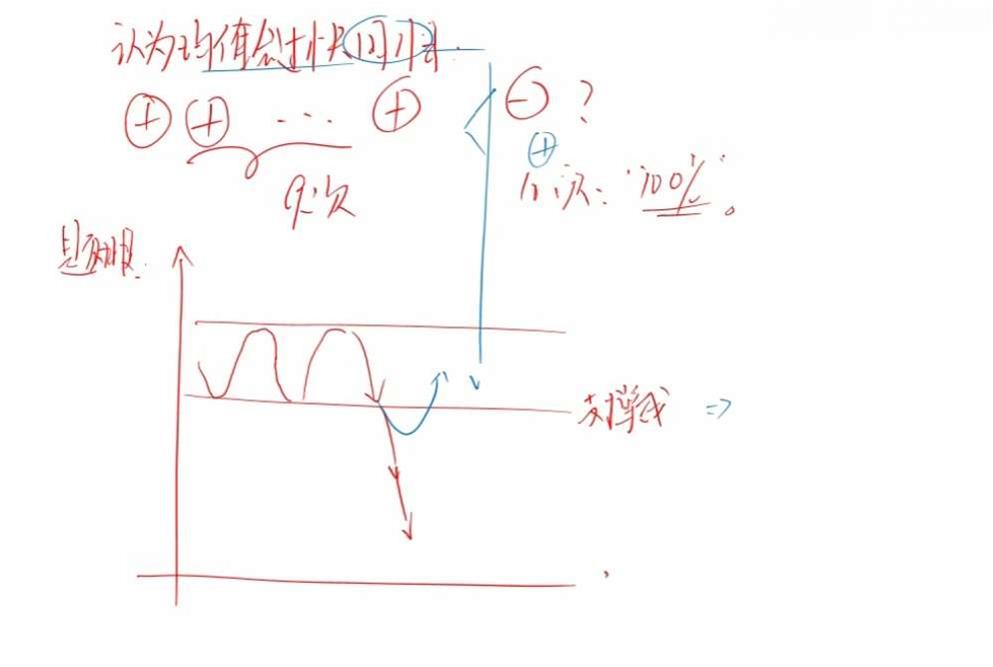 认为均值会过快回归.
⊕ ⊕ ... ⊕ ⊖ ?
⊕
9次
10次: "100%"。
支撑线 =>